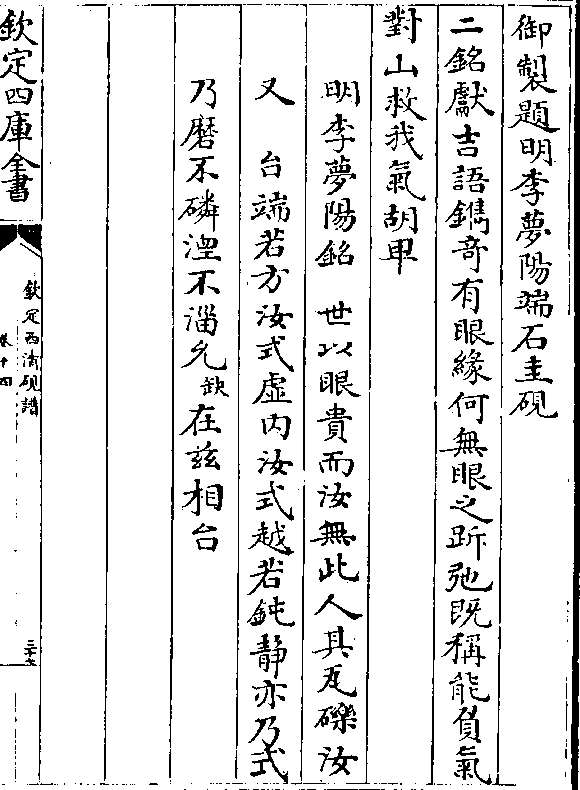 御製題明李夢陽端石圭硯
二銘獻吉語鐫奇有眼緣何無眼之跅弛既稱能負氣
對山救我氣胡卑
明李夢陽銘　世以眼貴而汝無此人具瓦礫汝
又　台端若方汝式虛内汝式越若鈍静亦乃式
乃磨不磷湼不淄允缺在兹相台
欽定四庫全書
欽定西清硯譜
卷十四